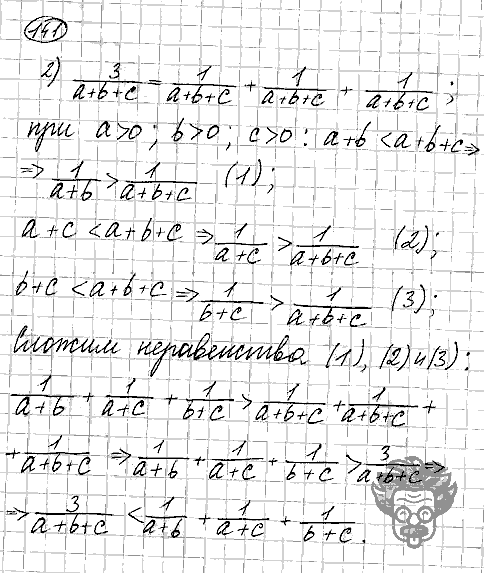 141
2) 3/(a+b+c) = 1/(a+b+c) + 1/(a+b+c) + 1/(a+b+c);
при a>0; b>0; c>0: a+b < a+b+c ⇒
⇒ 1/(a+b) > 1/(a+b+c) (1);
a+c < a+b+c ⇒ 1/(a+c) > 1/(a+b+c) (2);
b+c < a+b+c ⇒ 1/(b+c) > 1/(a+b+c) (3);
Сложим неравенства (1), (2) и (3):
1/(a+b) + 1/(a+c) + 1/(b+c) > 1/(a+b+c) + 1/(a+b+c) +
+ 1/(a+b+c) ⇒ 1/(a+b) + 1/(a+c) + 1/(b+c) > 3/(a+b+c) ⇒
⇒ 3/(a+b+c) < 1/(a+b) + 1/(a+c) + 1/(b+c).